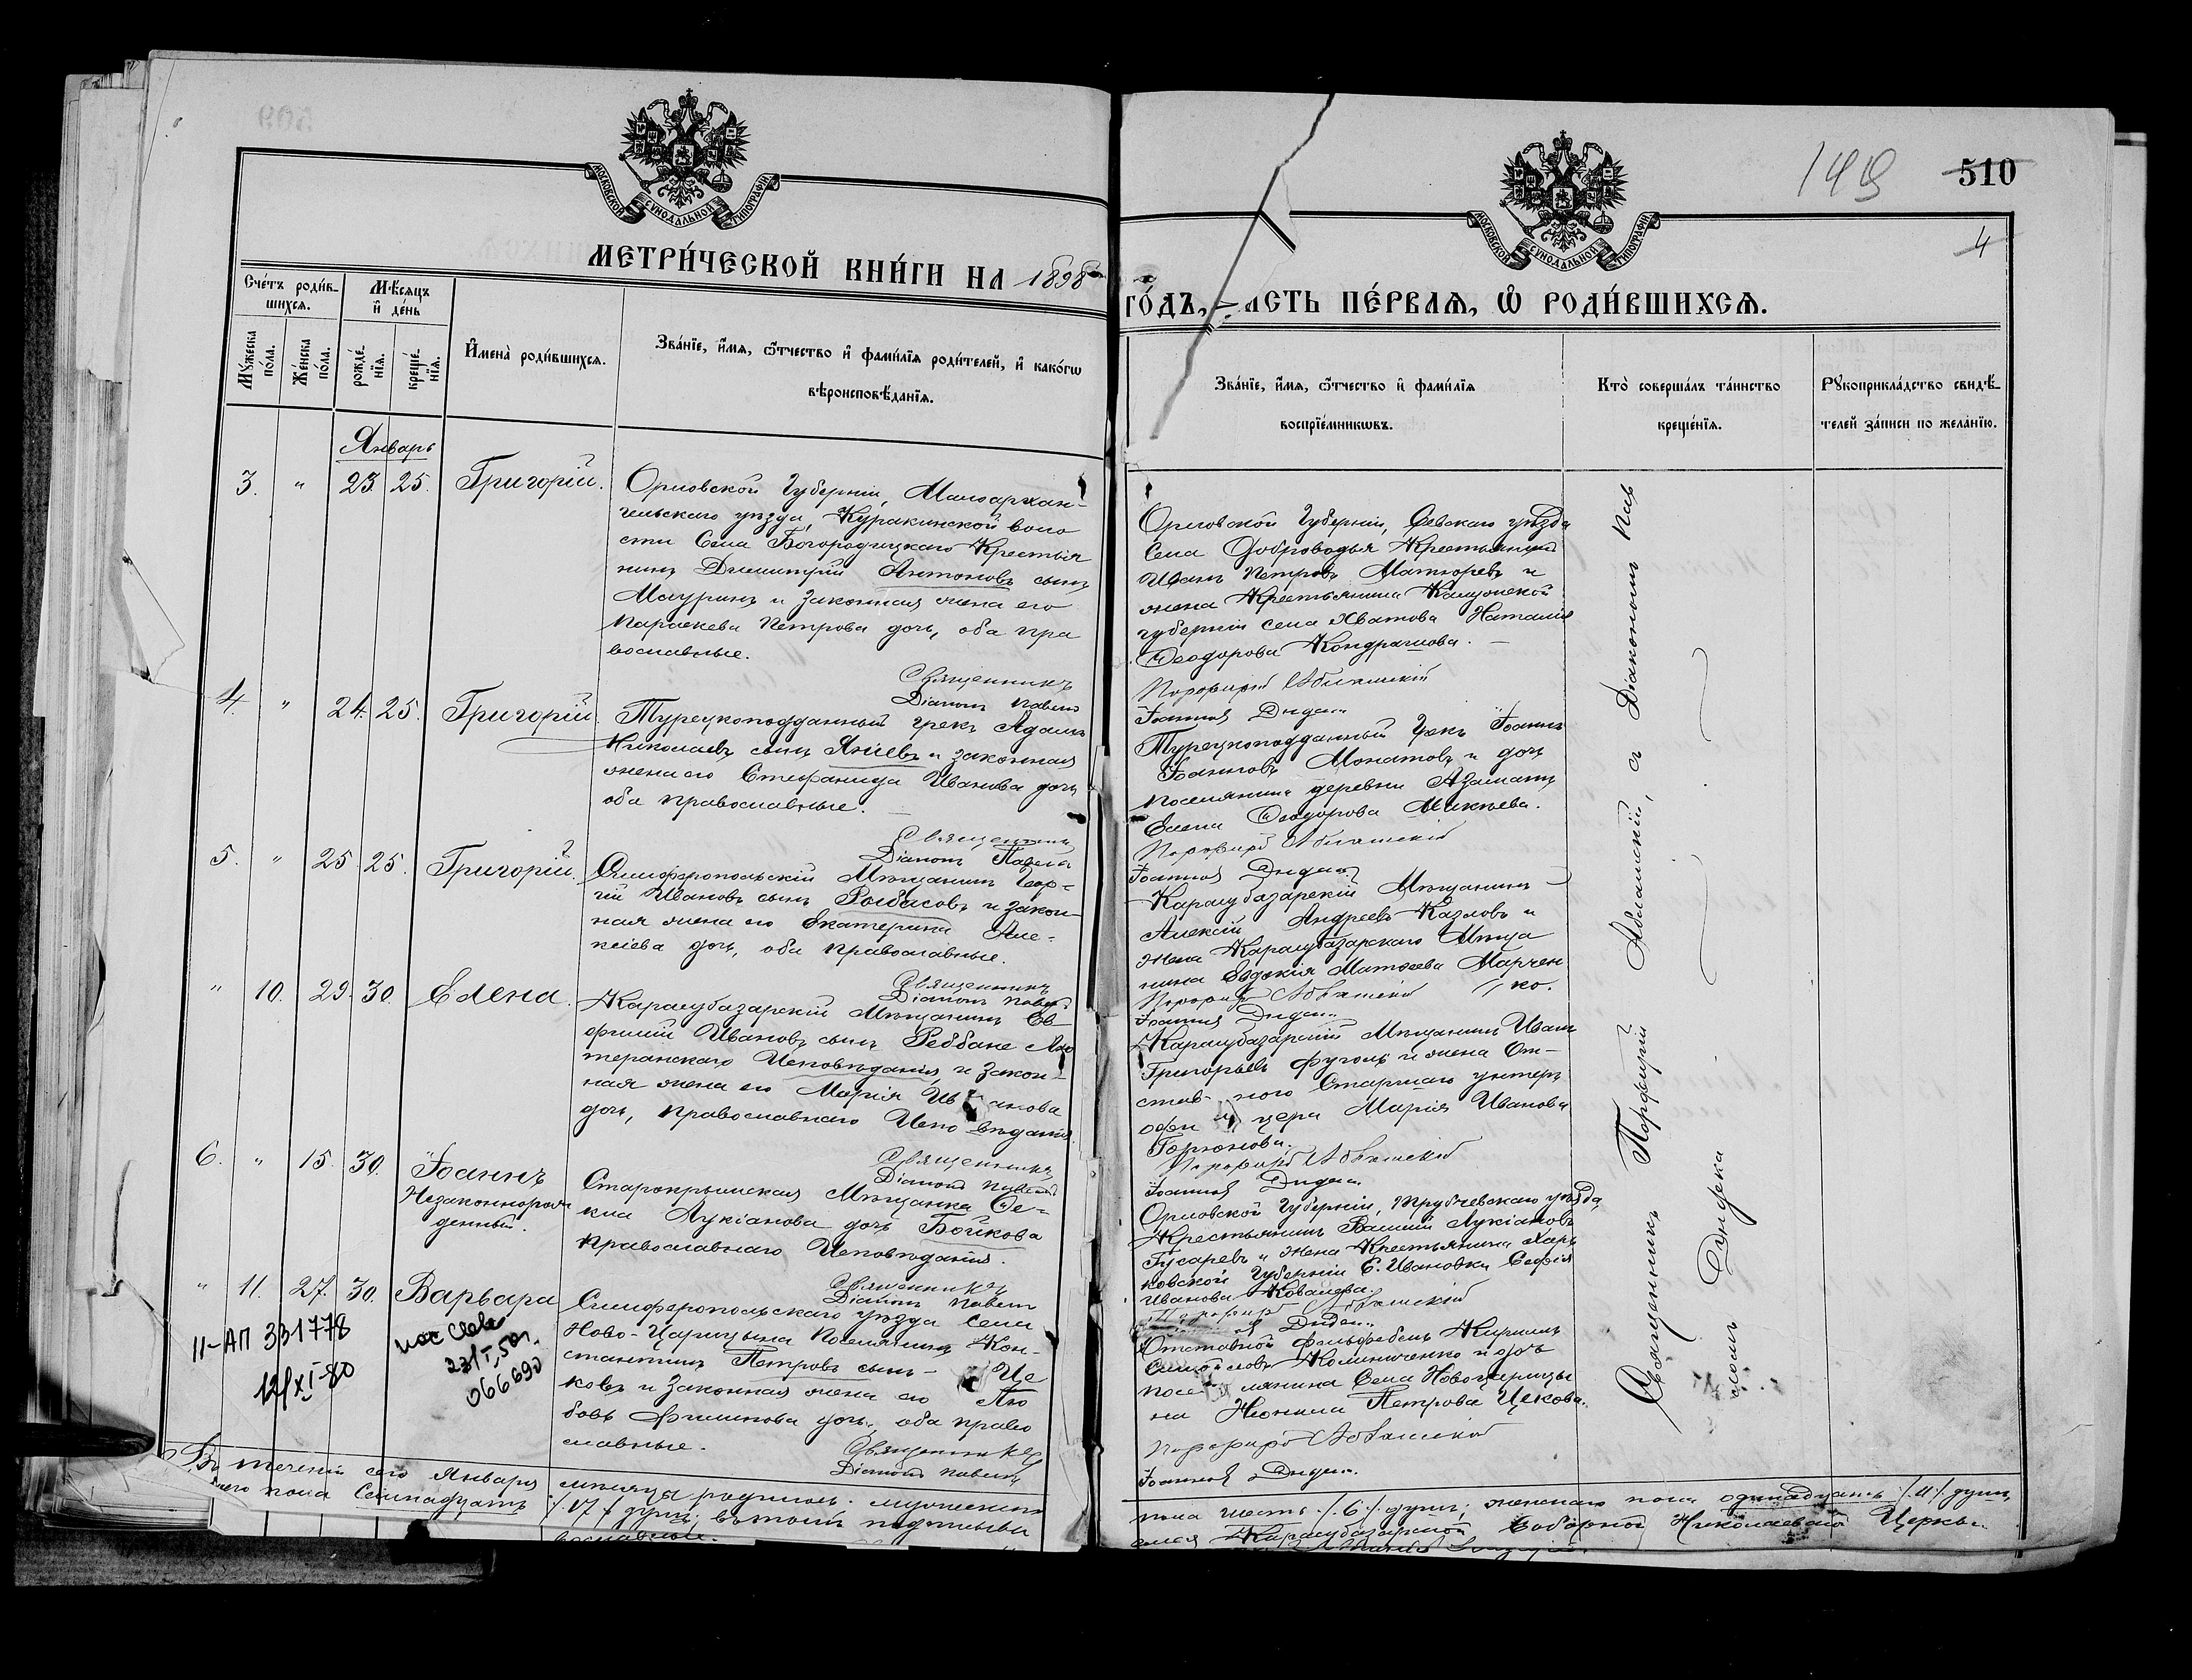 510
149
4
МОСКОВСКОЙ СѴНОДАЛЬНОЙ ТИПОГРАФІИ
МОСКОВСКОЙ СѴНОДАЛЬНОЙ ТИПОГРАФІИ
МЕТРИ́ЧЕСКОЙ КНИ́ГИ НА 1898
ГО́ДЪ, АСТЬ ПЕ́РВАЯ, Ѡ҆ РОДИ́ВШИХСЯ.
Сче́тъ роди́в-
шихся.
Мꙋ́жеска по́ла.
Же́нска по́ла.
Мѣ́сяцъ и҆ де́нь
рожде́-нїя.
креще́-нїя.
И҆мена̀ роди́вшихся.
Зва́нїе, и҆́мя, ѻ҆́тчество и҆ фами́лїя роди́телей, и҆ како́гѡ
вѣроисповѣ́данїя.
Зва́нїе, и҆́мя, ѻ҆́тчество и҆ фами́лїя
воспрїе́мникѡвъ.
Кто̀ соверша́лъ та́инство
креще́нїя.
Рꙋкоприкла́дство свидѣ́-
телей за́писи по жела́нїю.
Январь
3. " 23. 25. Григорій.
Орловской Губерніи, Малоархан-
гельскаго уѣзда, Куракинской воло
сти Села Богородицкаго Крестья
нинъ Димитрій Антоновъ сынъ
Мазуринъ и законная жена его
Параскева Петрова дочь, оба пра
вославные.
Священникъ
Діаконъ Павелъ
Орловской Губерніи, Севскаго уѣзда
Села Доброводья Крестьянинъ
Иванъ Петровъ Матюревъ и
жена Крестьянина Калужской
губерніи села Хватова Наталія
Ѳеодорова Кондрашова.
Порфирій Абламскій
Іоанновъ Диден
4. " 24. 25. Григорій.
Турецкоподданный грекъ Адамъ
Николаевъ сынъ Яніевъ и законная
жена его Стефанида Иванова дочь
оба православные.
Священникъ
Діаконъ Павелъ
Турецкоподданный Грекъ Іоаннъ
Іоанновъ Монатовъ и дочь
поселянина деревни Азаматъ
Елена Ѳеодорова Микѣева.
Порфирій Абламскій
Іоанновъ Диден
5. " 25 25. Григорій.
Симферопольскій Мѣщанинъ Геор-
гій Ивановъ сынъ Рыбасовъ и закон-
ная жена его Екатерина Але-
ксіева дочь, оба православные.
Священникъ
Діаконъ Павелъ
Карасубазарскій Мѣщанинъ
Алексій Андреевъ Казловъ и
жена Карасубазарскаго Мѣща
нина Евдокія Матѳеева Марчен
ко.
Порфирій Абламскій
Іоанновъ Диден
" 10. 29. 30. Елена.
Карасубазарскій Мѣщанинъ Ев-
фимій Ивановъ сынъ Реббане Лю
теранскаго Исповѣданія, и закон-
ная жена его Марія Ивanова
дочь, православнаго Исповѣданія.
Священникъ
Діаконъ Павелъ
Карасубазарскій Мѣщанинъ Иванъ
Григорьевъ Фуголь и жена От-
ставного Старшаго унтеръ
офицера Марія Иванова
Горюнова.
Порфирій Абламскій
Іоанновъ Диден
6. " 15. 30. Іоаннъ
Незаконнорож
денный.
Старокрымская Мѣщанка Ѳе-
кла Лукіанова дочь Бойкова
православнаго Исповѣданія.
Священникъ
Діаконъ Павелъ
Орловской Губерніи, Трубчевскаго уѣзда,
Крестьянинъ Василій Лукіановъ
Гусаревъ и жена Крестьянина Харь
ковской Губерніи С. Ивановки Софія
Иванова Ковалева.
Порфирій Абламскій
Диден
" 11. 27. 30. Варвара
Симферопольскаго уѣзда Села
Ново-Царицына Поселянинъ Кон-
стантинъ Петровъ сынъ Це
ковъ и законная жена его Лю
бовь Филипова дочь, оба право
славные.
Священникъ
Діаконъ Павелъ
Отставной Фельдфебель Кириллъ
Коминиченко и дочь
поселянина Села Новоцарицы
на Неонила Петрова Цекова.
Порфирій Абламскій
Іоанновъ Диден
II-АП 331778
12/XI-80
23/I, 50г.
066690
Священникъ Порфирій Абламскій, съ Діакономъ Пав
ломъ Диденка
Въ теченіи сего Января мѣсяца родилось: мужескаго
пола шесть /6/ душъ; женскаго пола одинадцать /11/ душъ,
всего пола Семнадцать /17/ душъ; въ томъ подписы
емся Карасубазарской Соборной Николаевской Церкви